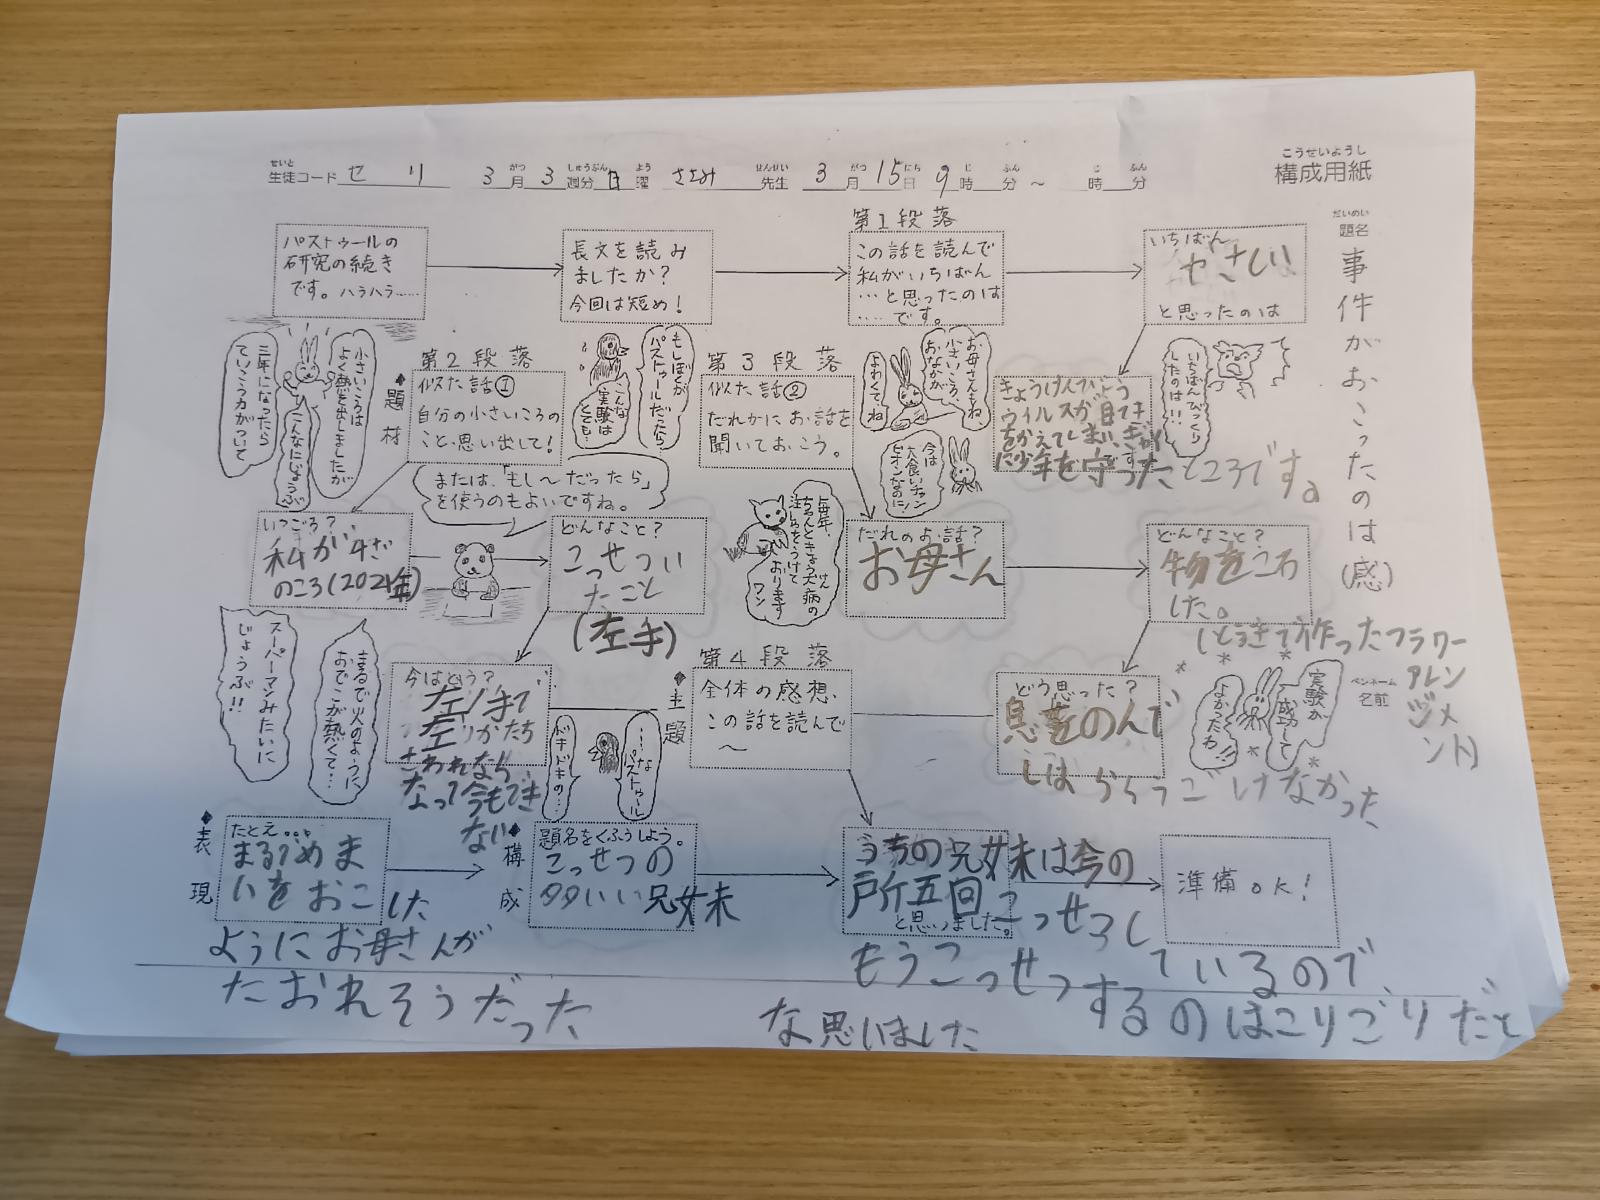 こうせいようし
構成用紙
せいと がつ しゅうぶん よう せんせい がつ にち じ ふん じ ふん
生徒コード セリ 3月3週分日曜 ささみ先生 3月15日9時 分～ 時 分
だいめい
題名
事件がおこったのは(感)
ペンネーム
名前
パストゥールの
研究の続き
です。ハラハラ……
長文を読み
ましたか？
今回は短め！
第1段落
この話を読んで
私がいちばん
…と思ったのは
……です。
いちばん
やさしい
と思ったのは
いちばんびっくり
したのは！！
ウイルスが
少年を守ったところです。
◆題材
小さいころは
よく熱を出しましたが
三年になったら
ていこう力がついて
こんなにじょうぶ
第2段落
似た話①
自分の小さいころの
こと思い出して！
または、「もし～だったら」
を使うのもよいですね。
もしぼくが
パストゥールだったら
こんな
実験は
とても…
第3段落
似た話②
だれかにお話を
聞いておこう。
お母さんもね、
小さいころ、
おなかが
よわくて、ね
今は
大食いチャン
ピオンなのに！
毎年、
ちゃんときょう犬病の
けん
注しゃをうけて
おります
ワン
いつごろ？
私が4才
のころ(2021年)
どんなこと？
こっせつい
たこと
(左手)
今はどう？
左手で
さわれなく
なって今もでき
ない
だれのお話？
お母さん
どんなこと？
物をころ
した。
て作ったフラワー
アレン
ジメ
ント)
どう思った？
息をのんで
実験が
成功して
よかったわ！！
スーパーマンみたいに
じょうぶ！！
まるで火のように
おでこが熱くて…
◆主題
第4段落
全体の感想、
この話を読んで
～
……な
パストゥール
ドキドキの…
◆表現
たとえ。。。
まるでめま
いをおこした
ようにお母さんが
たおれそうだった
◆構成
題名をくふうしよう。
こっせつの
多いい兄妹
うちの兄妹は今の
所五回こっせつし
と思いました。
ているので、
もうこっせつするのはこりごりだと
な思いました
準備OK！